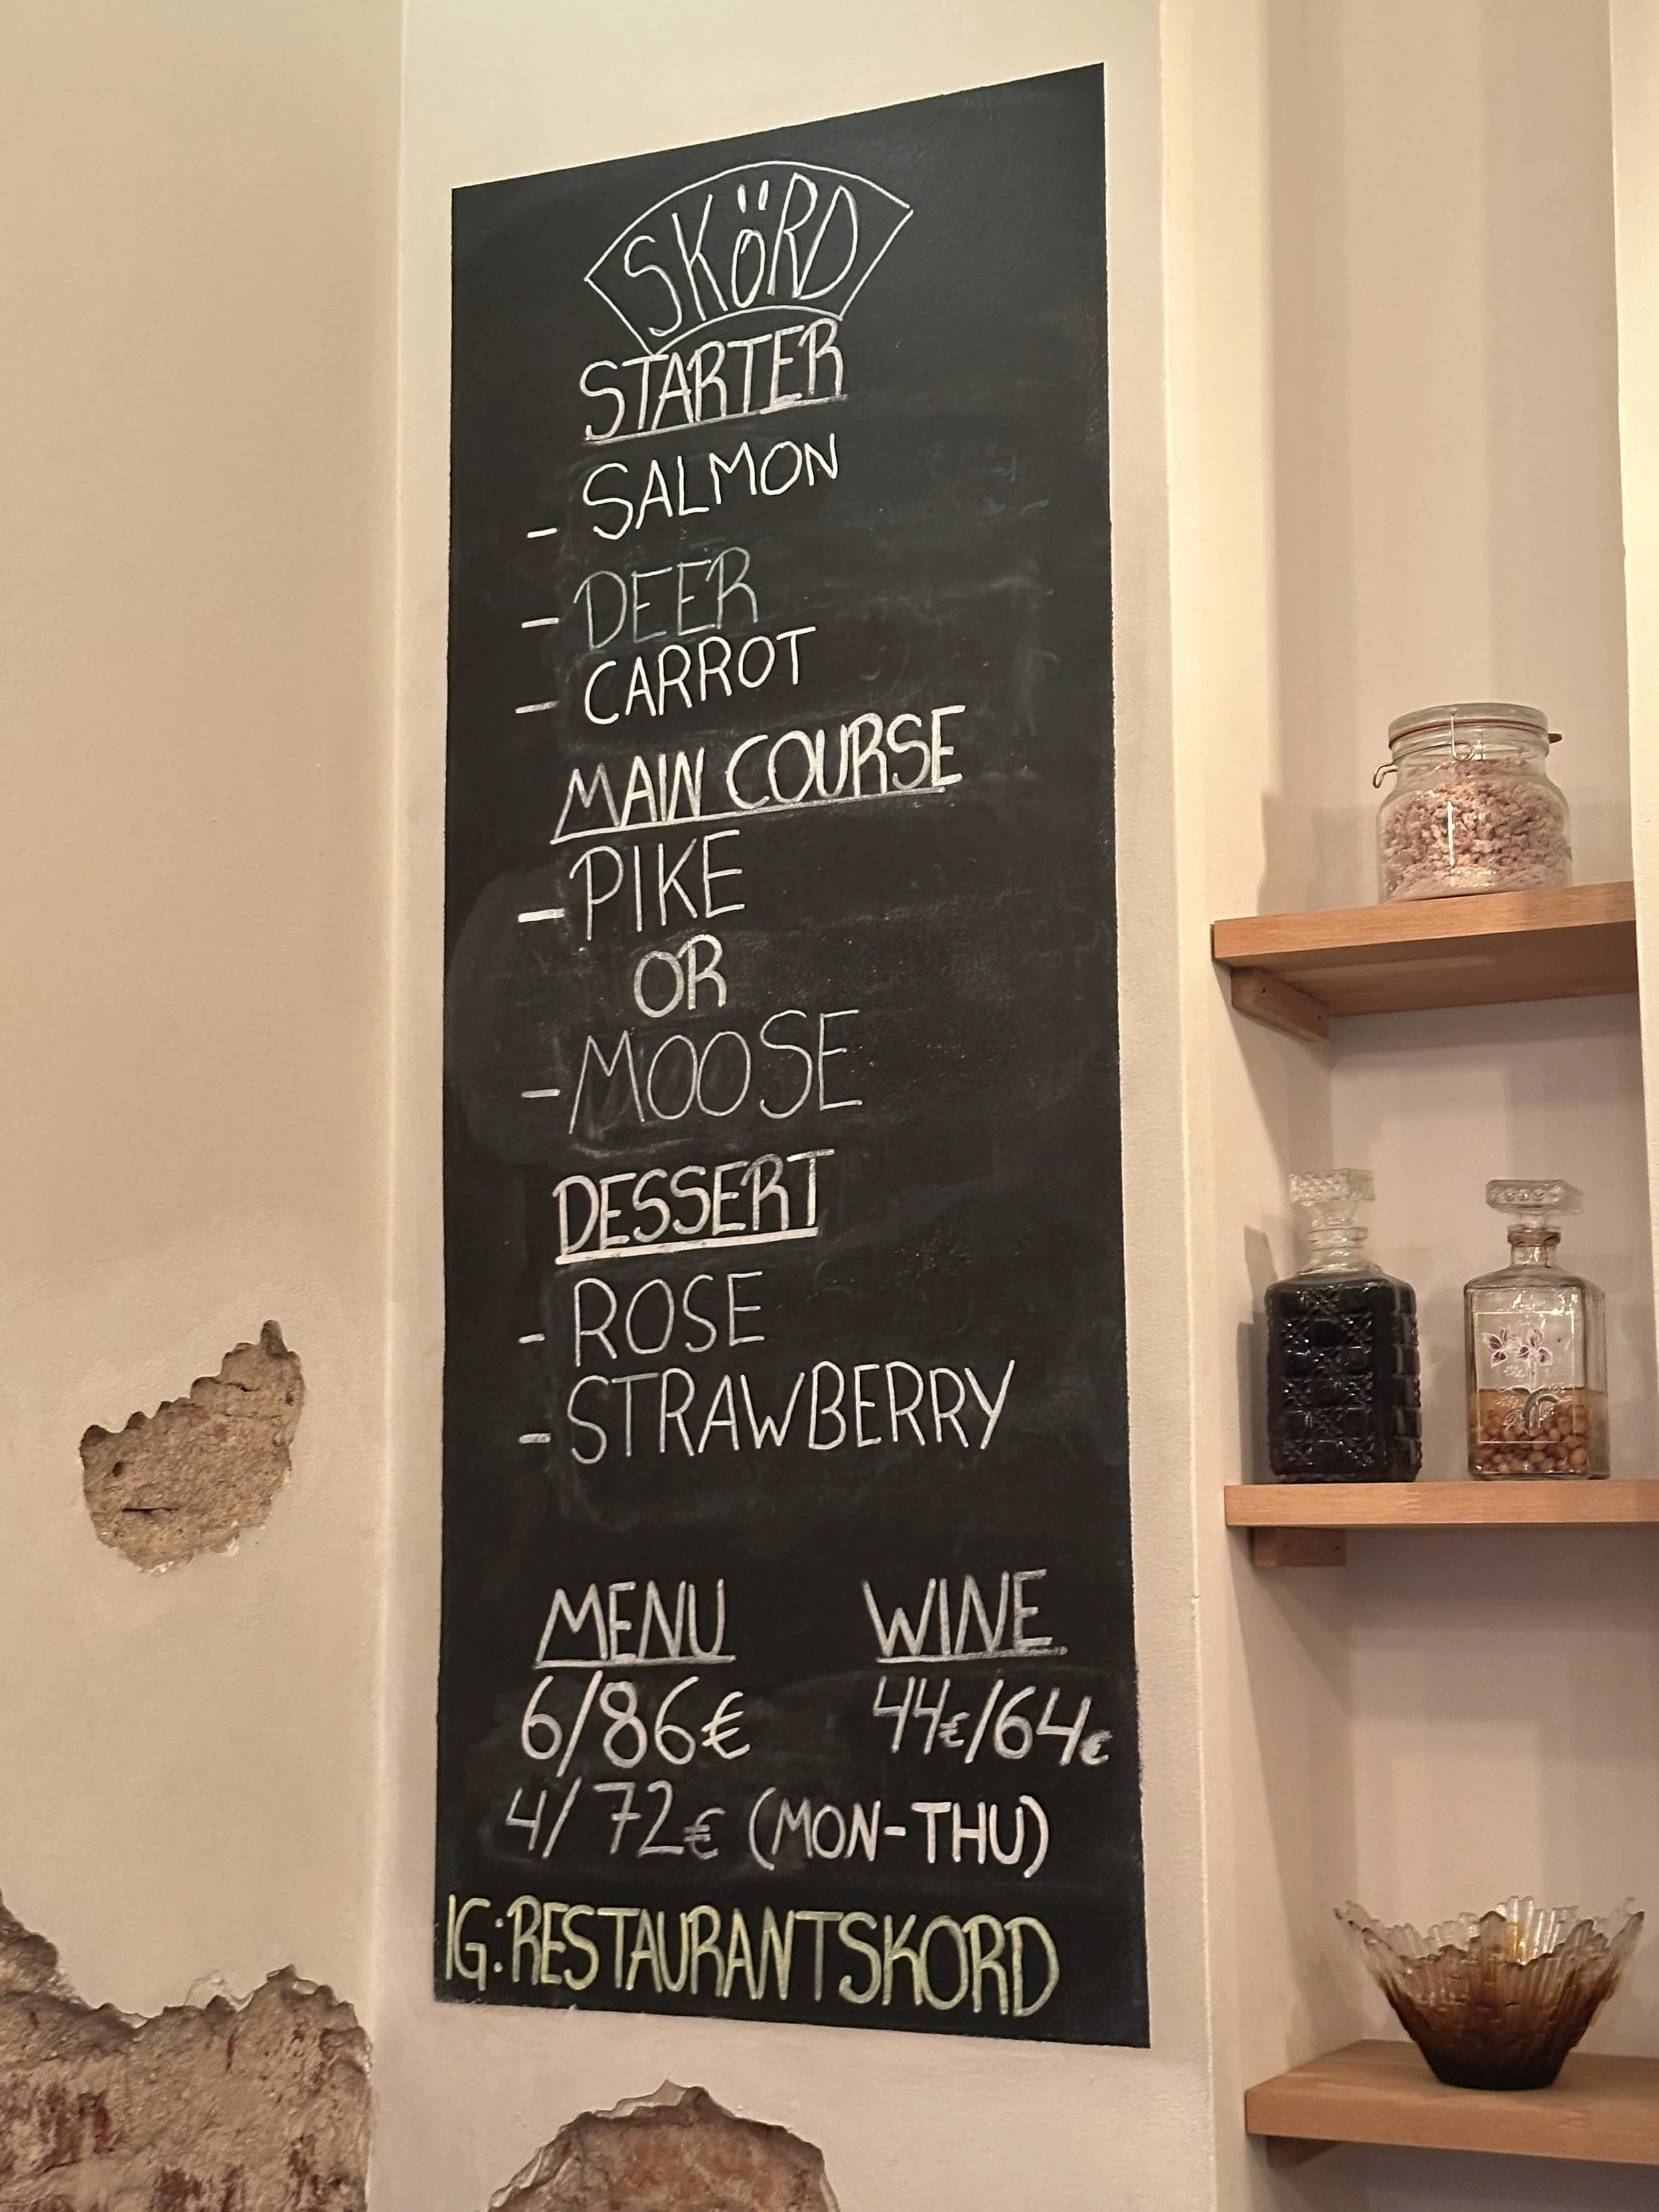 SKÖRD
STARTER
- SALMON
- DEER
- CARROT
MAIN COURSE
- PIKE
OR
- MOOSE
DESSERT
- ROSE
- STRAWBERRY
MENU WINE
6/86€ 44€/64€
4/72€ (MON-THU)
IG:RESTAURANTSKORD